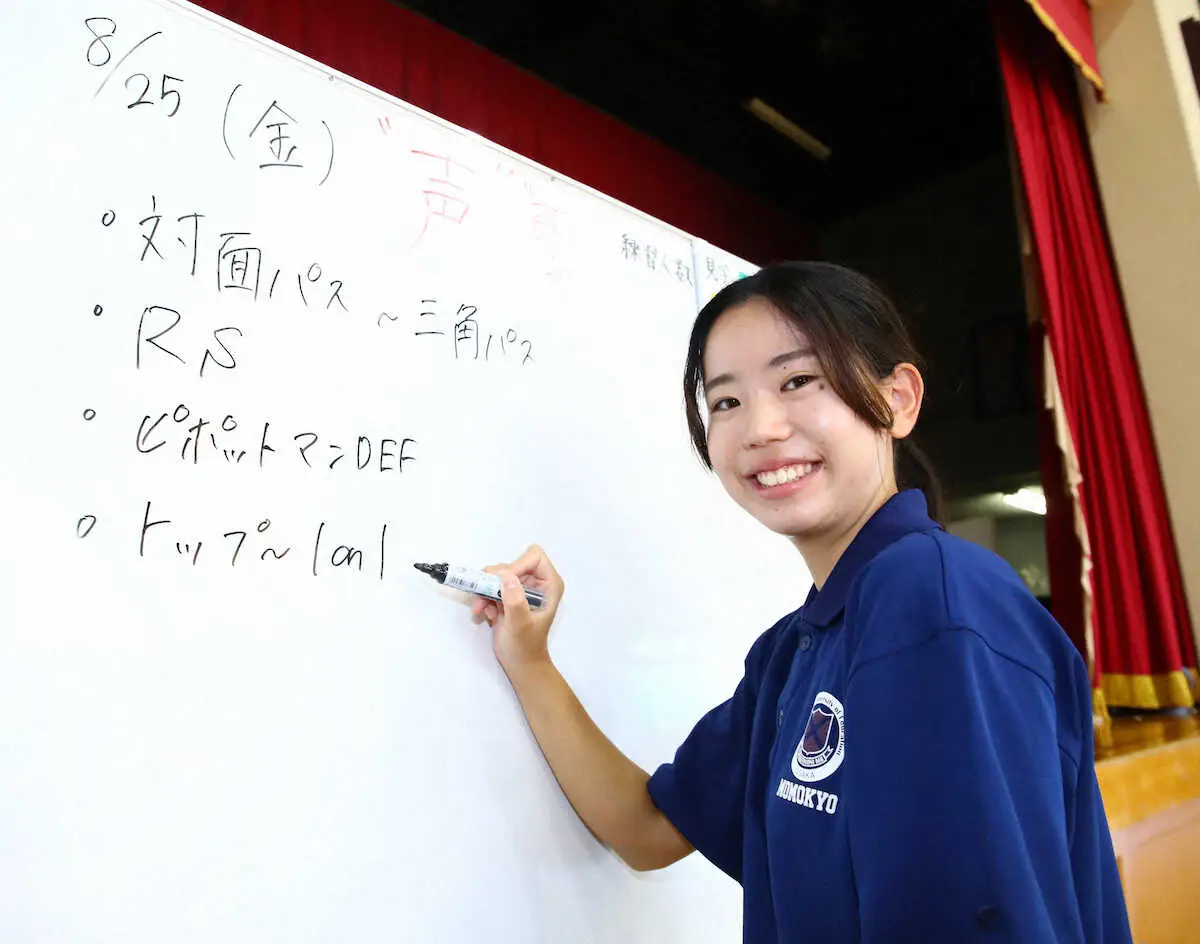 8/25 (金)
"声"
練習人数
見学
。対面パス～三角パス
。RS
。ピボットマンDEF
。トップ～1on1
MOMOKYO